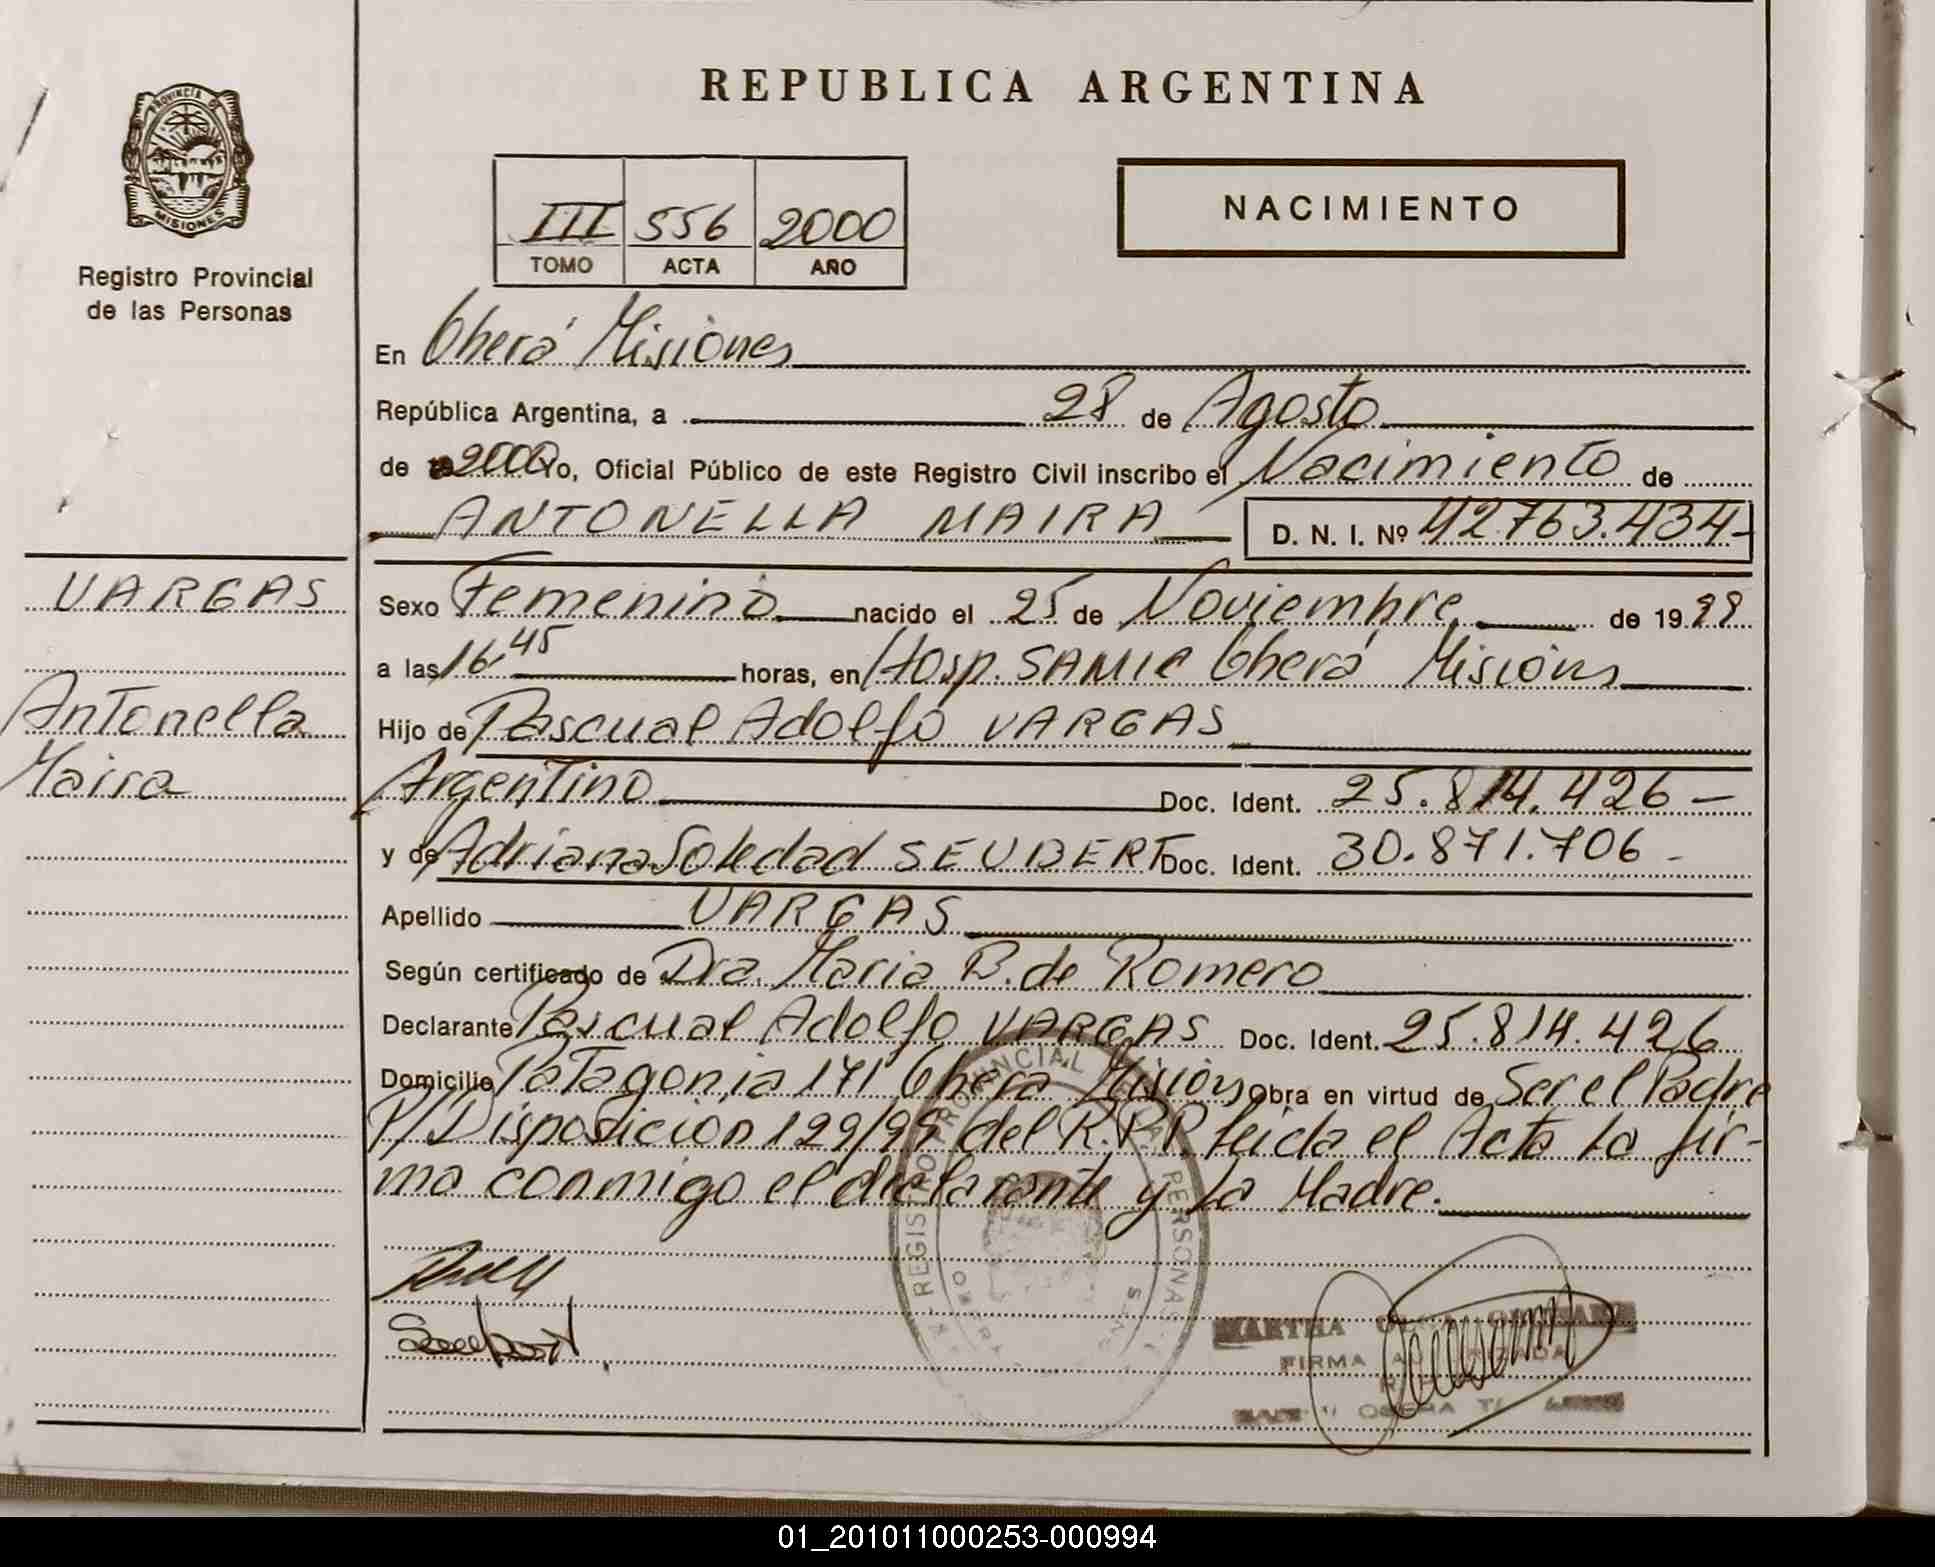 REPUBLICA ARGENTINA
PROVINCIA DE
MISIONES
Registro Provincial
de las Personas
III 556 2000
TOMO ACTA AÑO
NACIMIENTO
En Oberá Misiones
República Argentina, a 28 de Agosto
de 2000 Yo, Oficial Público de este Registro Civil inscribo el Nacimiento de
ANTONELLA MAIRA D. N. I. Nº 42.763.434-
VARGAS
Antonella
Maira
Sexo Femenino nacido el 25 de Noviembre de 1999
a las 16,45 horas, en Hosp. SAMIC Oberá Misions
Hijo de Pascual Adolfo VARGAS
Argentino Doc. Ident. 25.814.426 -
y de Adriana Soledad SEUBERT Doc. Ident. 30.871.706 -
Apellido VARGAS
Según certificado de Dra. Maria B. de Romero
Declarante Pascual Adolfo VARGAS Doc. Ident. 25.814.426
Domicilio Patagonia 171 Oberá Misions Obra en virtud de Ser el Padre
P/Disposicion 129/99 del R.P.P. Leida el Acta la fir-
ma conmigo el declarante y la Madre.
REGISTRO PROVINCIAL DE LAS PERSONAS
OBERA
Seubert
MARTHA
FIRMA AUTORIZADA
OBERA
01_201011000253-000994